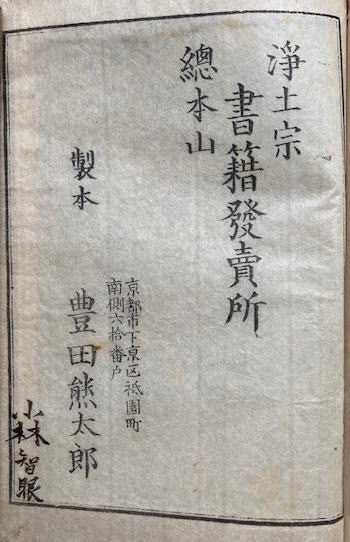 淨土宗
總本山
書籍發賣所
京都市下京区祇園町
南側六拾番戸
製本 豊田熊太郎
小林智眼